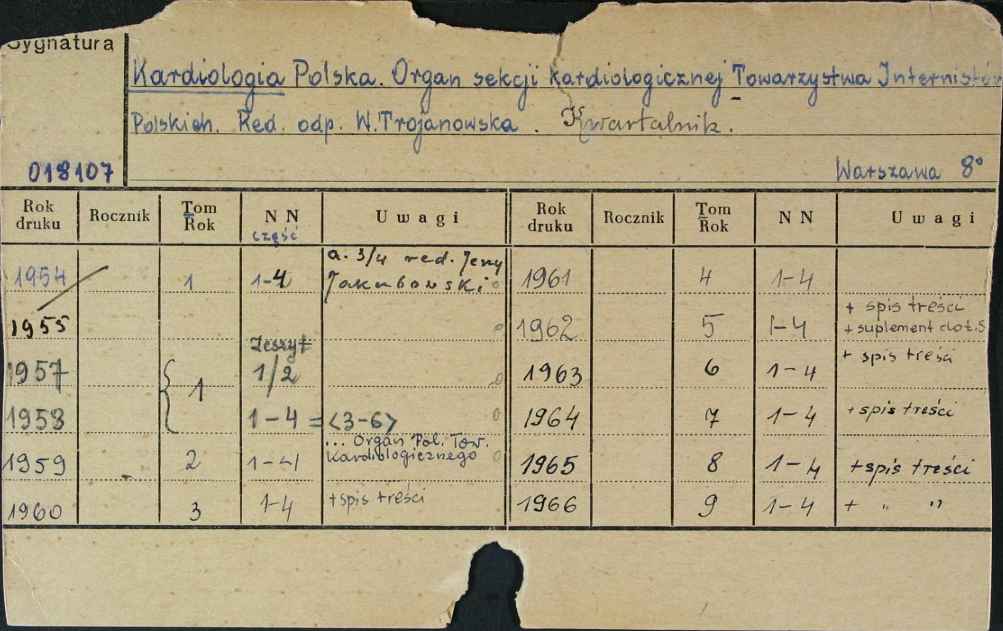 Sygnatura
Kardiologia Polska. Organ sekcji kardiologicznej Towarzystwa Internistów
Polskich. Red. odp. W. Trojanowska. Kwartalnik.
018107 Warszawa 8°
Rok druku Rocznik Tom Rok NN część Uwagi Rok druku Rocznik Tom Rok NN Uwagi
1954 1 1-4 a. 3/4 red. Jerzy Jakubowski 1961 4 1-4
1955 1962 5 1-4 + spis treści + suplement do t.5
1957 1 Zeszyt 1/2 1963 6 1-4 + spis treści
1958 1-4 = <3-6> 1964 7 1-4 + spis treści
1959 2 1-4 ... Organ Pol. Tow. Kardiologicznego 1965 8 1-4 + spis treści
1960 3 1-4 + spis treści 1966 9 1-4 + " "